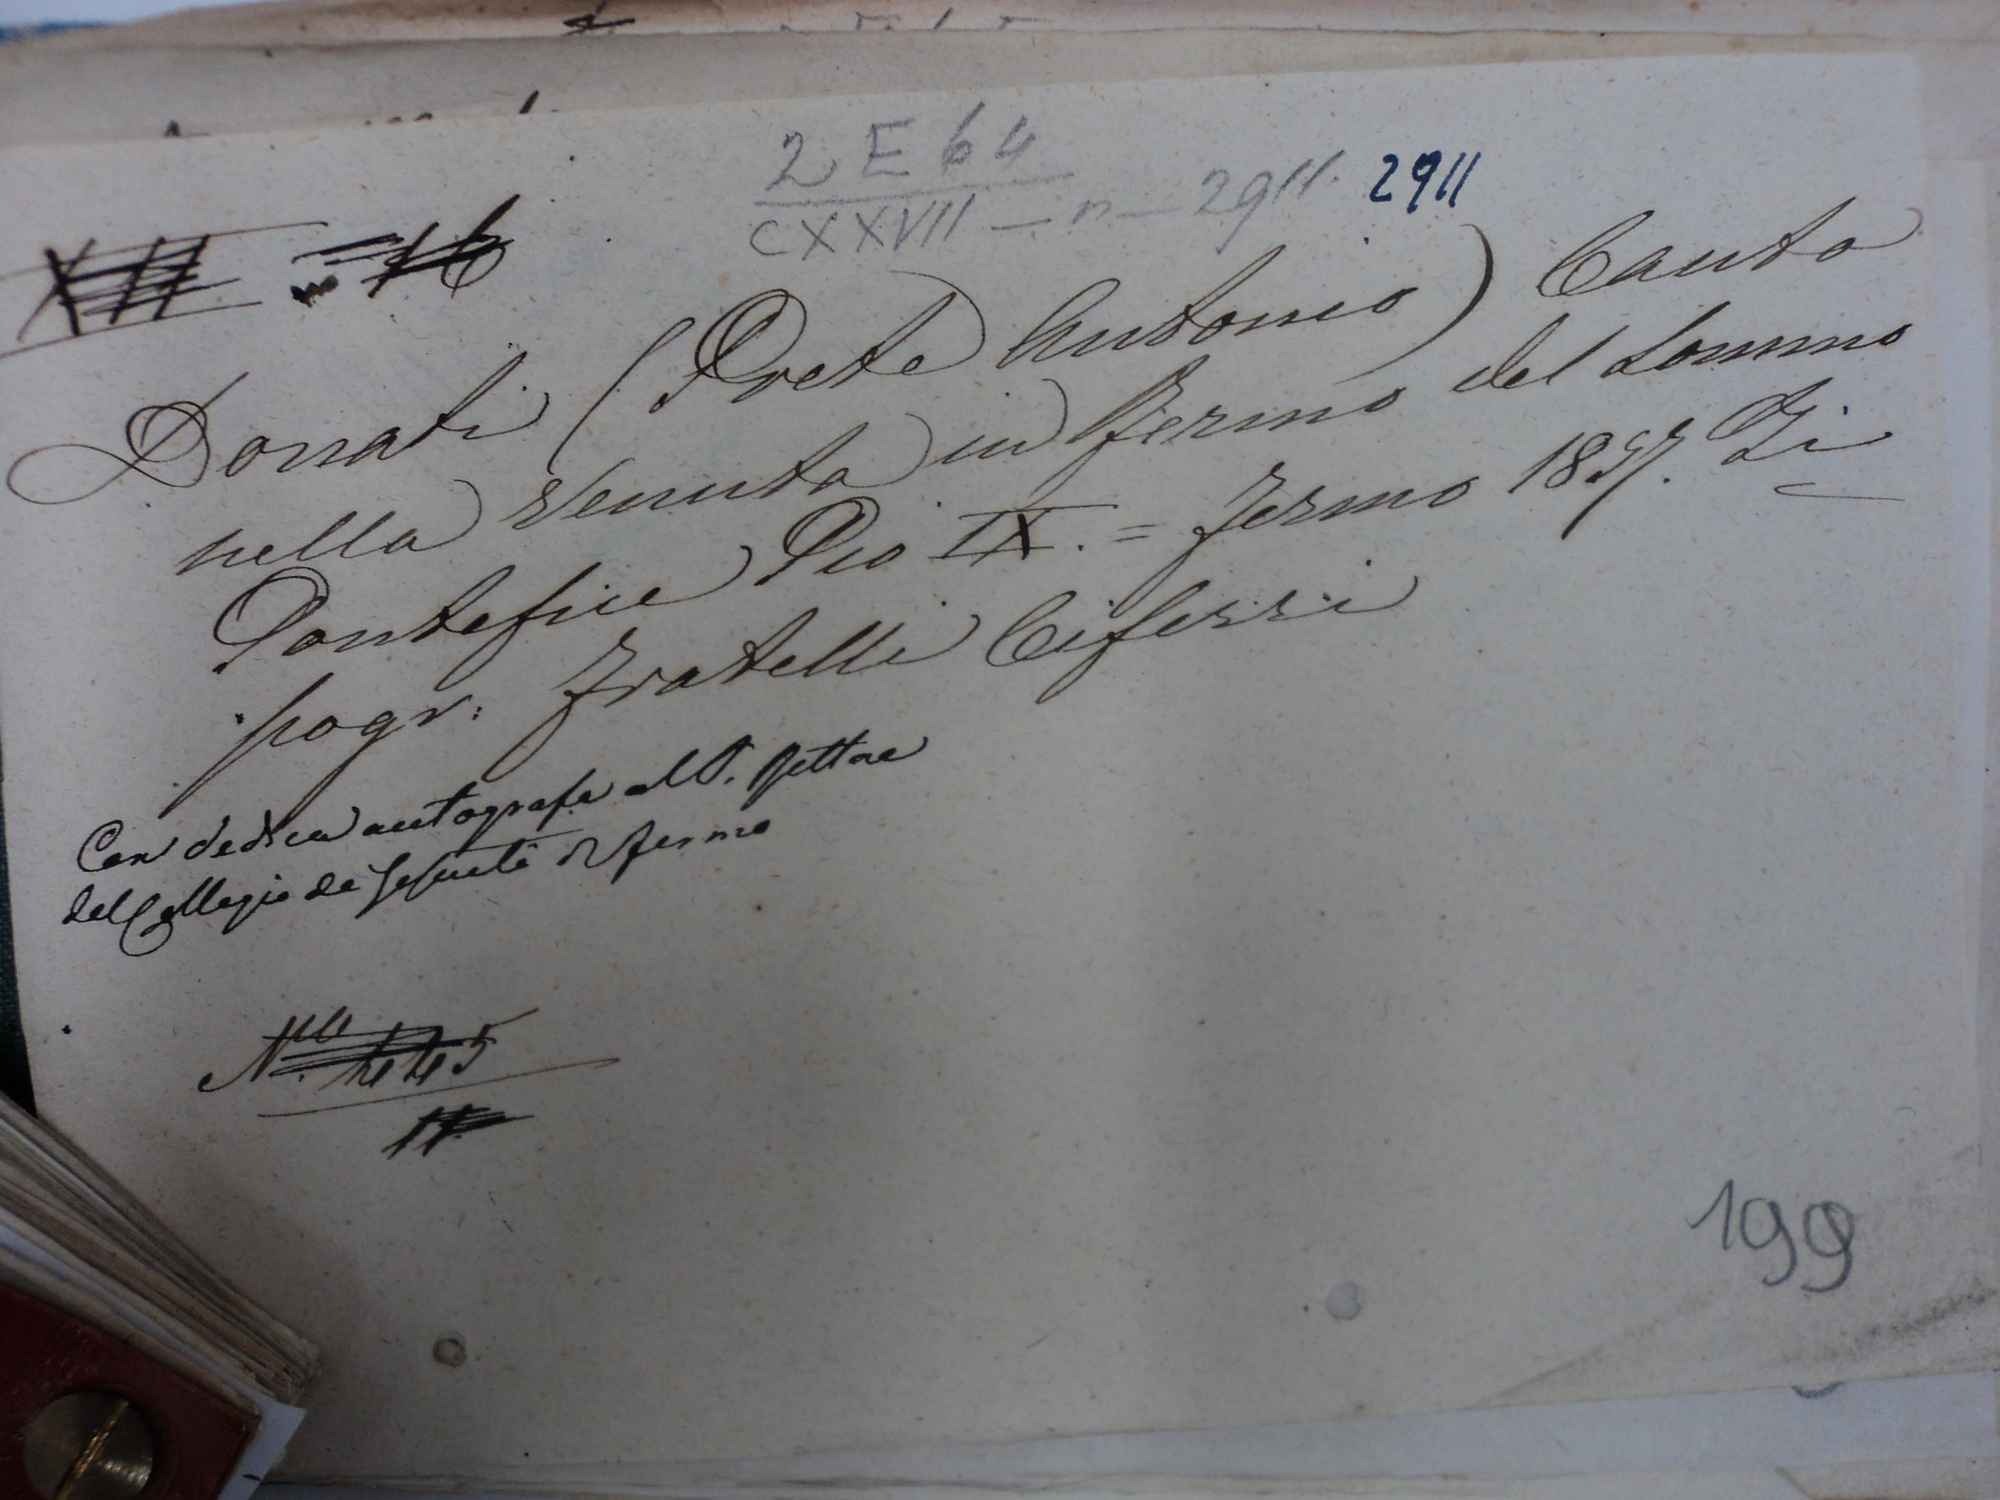 2 E 64
CXXVII - n - 2911. 2911
XII - no 16
Donati (Prete Antonio) Canto
nella venuta in Fermo del sommo
Pontefice Pio IX. = Fermo 1857. Ti=
pogr: Fratelli Ciferri
Con dedica autografa al P. Rettore
del Collegio de' Gesuiti di Fermo
445
199